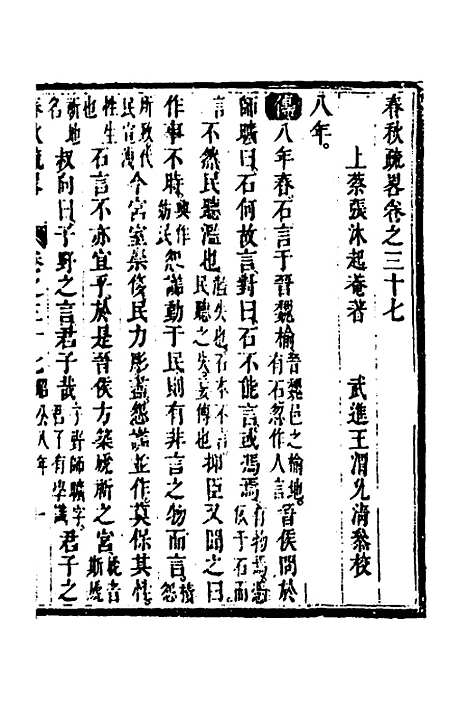 春秋疏畧卷之三十七
上蔡張沐起菴著　武進王渭允清叅校
八年。
傳八年春石言于晉魏榆晉魏邑之榆地。有石忽作人言晉侯問於
師曠曰石何故言對曰石不能言或馮焉有物馮憑依于石而
言不然民聽濫也濫失也石本不言民聽之失妄傳也抑臣又聞之曰
作事不時興作妨民怨讟動于民則有非言之物而言積怨
所致代民宣洩今宮室崇侈民力彫盡怨讟並作莫保其性
性生也石言不亦宜乎於是晉侯方築虒祁之宮虒音斯虒
祁地名叔向曰子野之言君子哉子野師曠字。君子有學識君子之
春秋疏畧　卷之三十七昭公八年　一